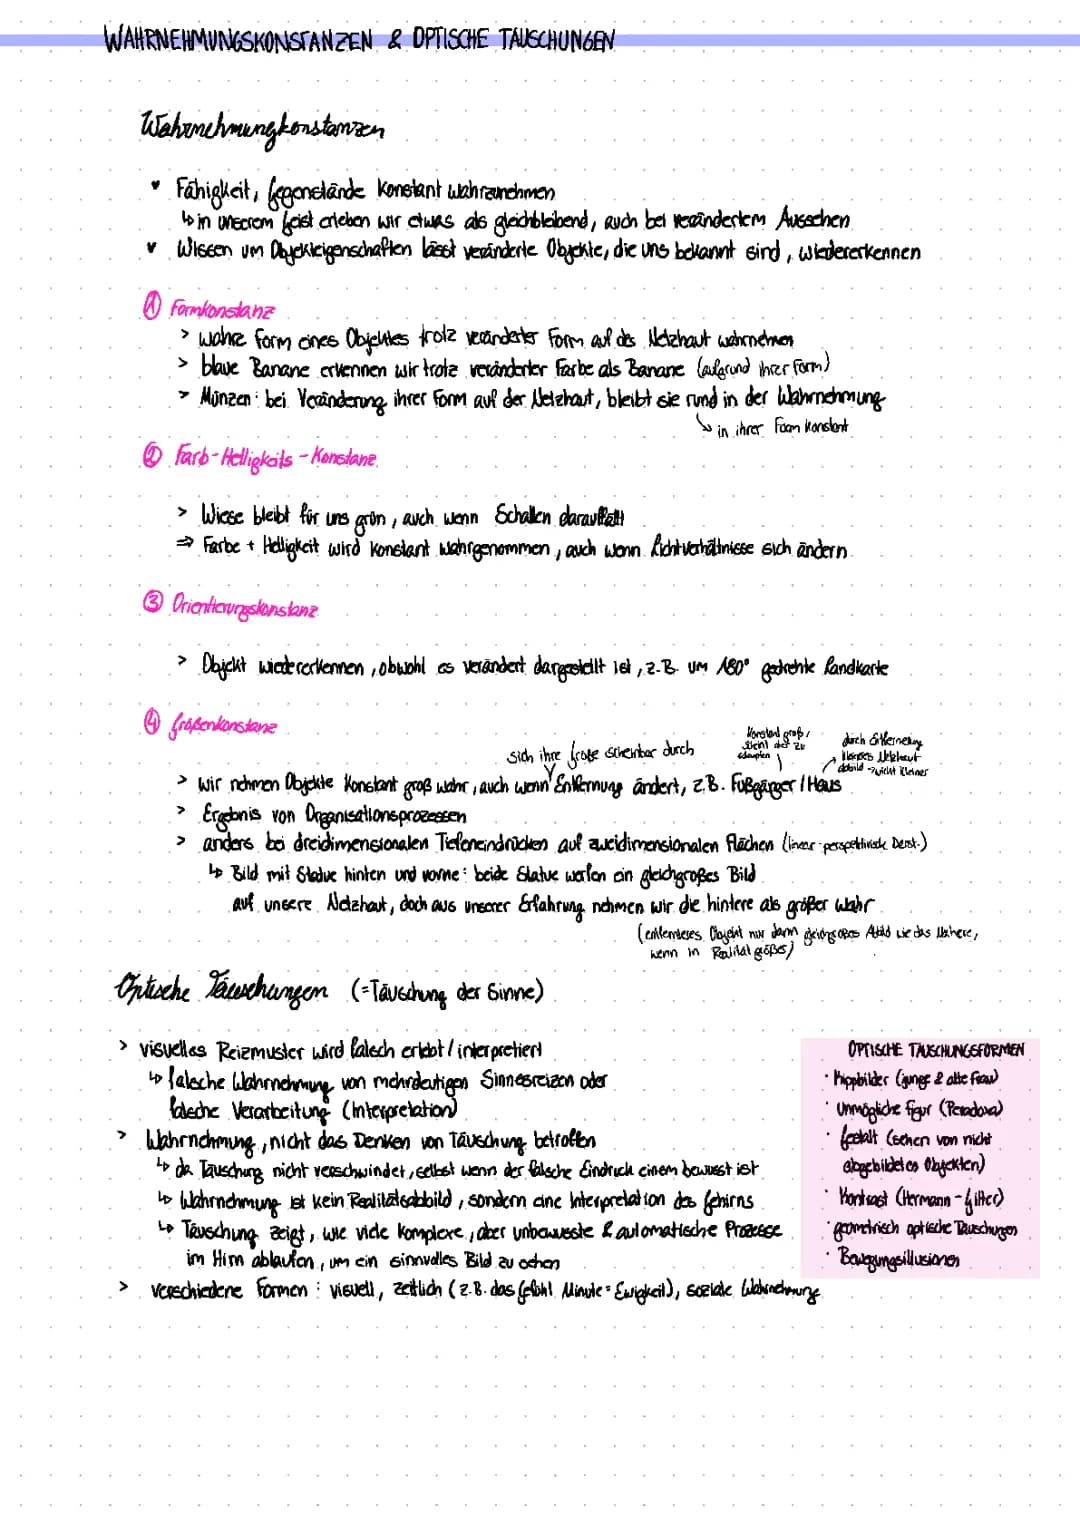 WAHRNEHMUNGSKONSTANZEN & OPTISCHE TÄUSCHUNGEN
Wahrnehmungkonstanzen
Fähigkeit, Gegenstände konstant wahrzunehmen
↳ in unserem Geist erleben wir etwas als gleichbleibend, auch bei verändertem Aussehen
Wissen um Objekteigenschaften lässt veränderte Objekte, die uns bekannt sind, wiedererkennen
① Formkonstanz
> wahre Form eines Objektes trotz veränderter Form auf des Netzhaut wahrnehmen
> blaue Banane erkennen wir trotz veränderter Farbe als Banane (aufgrund ihrer Form)
> Münzen: bei Veränderung ihrer Form auf der Netzhaut, bleibt sie rund in der Wahrnehmung
↳ in ihrer Form konstant
② Farb-Helligkeits-Konstanz
> Wiese bleibt für uns grün, auch wenn Schatten darauffällt
⇒ Farbe + Helligkeit wird konstant wahrgenommen, auch wenn Lichtverhältnisse sich ändern
③ Orientierungskonstanz
> Objekt wiedererkennen, obwohl es verändert dargestellt ist, z.B. um 180° gedrehte Landkarte
④ Größenkonstanz
sich ihre Größe scheinbar durch
konstant groß,
scheint aber zu
durch Entfernung
kleineres Netzhaut
abbild → wirkt kleiner
> wir nehmen Objekte konstant groß wahr, auch wenn Entfernung ändert, z.B. Fußgänger / Haus
> Ergebnis von Organisationsprozessen
> anders bei dreidimensionalen Tiefeneindrücken auf zweidimensionalen Flächen (linear-perspektivische Darst.)
↳ Bild mit Statue hinten und vorne: beide Statue werfen ein gleichgroßes Bild
auf unsere Netzhaut, doch aus unserer Erfahrung nehmen wir die hintere als größer wahr
(entferntes Objekt nur dann gleichgroßes Abbild wie das Nähere,
wenn in Realität größer)
Optische Täuschungen (=Täuschung der Sinne)
> visuelles Reizmuster wird falsch erlebt / interpretiert
↳ falsche Wahrnehmung von mehrdeutigen Sinnesreizen oder
falsche Verarbeitung (Interpretation)
> Wahrnehmung, nicht das Denken von Täuschung betroffen
↳ da Täuschung nicht verschwindet, selbst wenn der falsche Eindruck einem bewusst ist
↳ Wahrnehmung ist kein Realitätsabbild, sondern eine Interpretation des Gehirns
↳ Täuschung zeigt, wie viele komplexe, aber unbewusste & automatische Prozesse
im Hirn ablaufen, um ein sinnvolles Bild zu sehen
> verschiedene Formen: visuell, zeitlich (z.B. das Gefühl Minute = Ewigkeit), soziale Wahrnehmung
OPTISCHE TÄUSCHUNGSFORMEN
· Kippbilder (junge & alte Frau)
· Unmögliche Figur (Paradoxa)
· Gestalt (sehen von nicht
abgebildeten Objekten)
· Kontrast (Hermann-Gitter)
· geometrisch optische Täuschungen
· Bewegungsillusionen